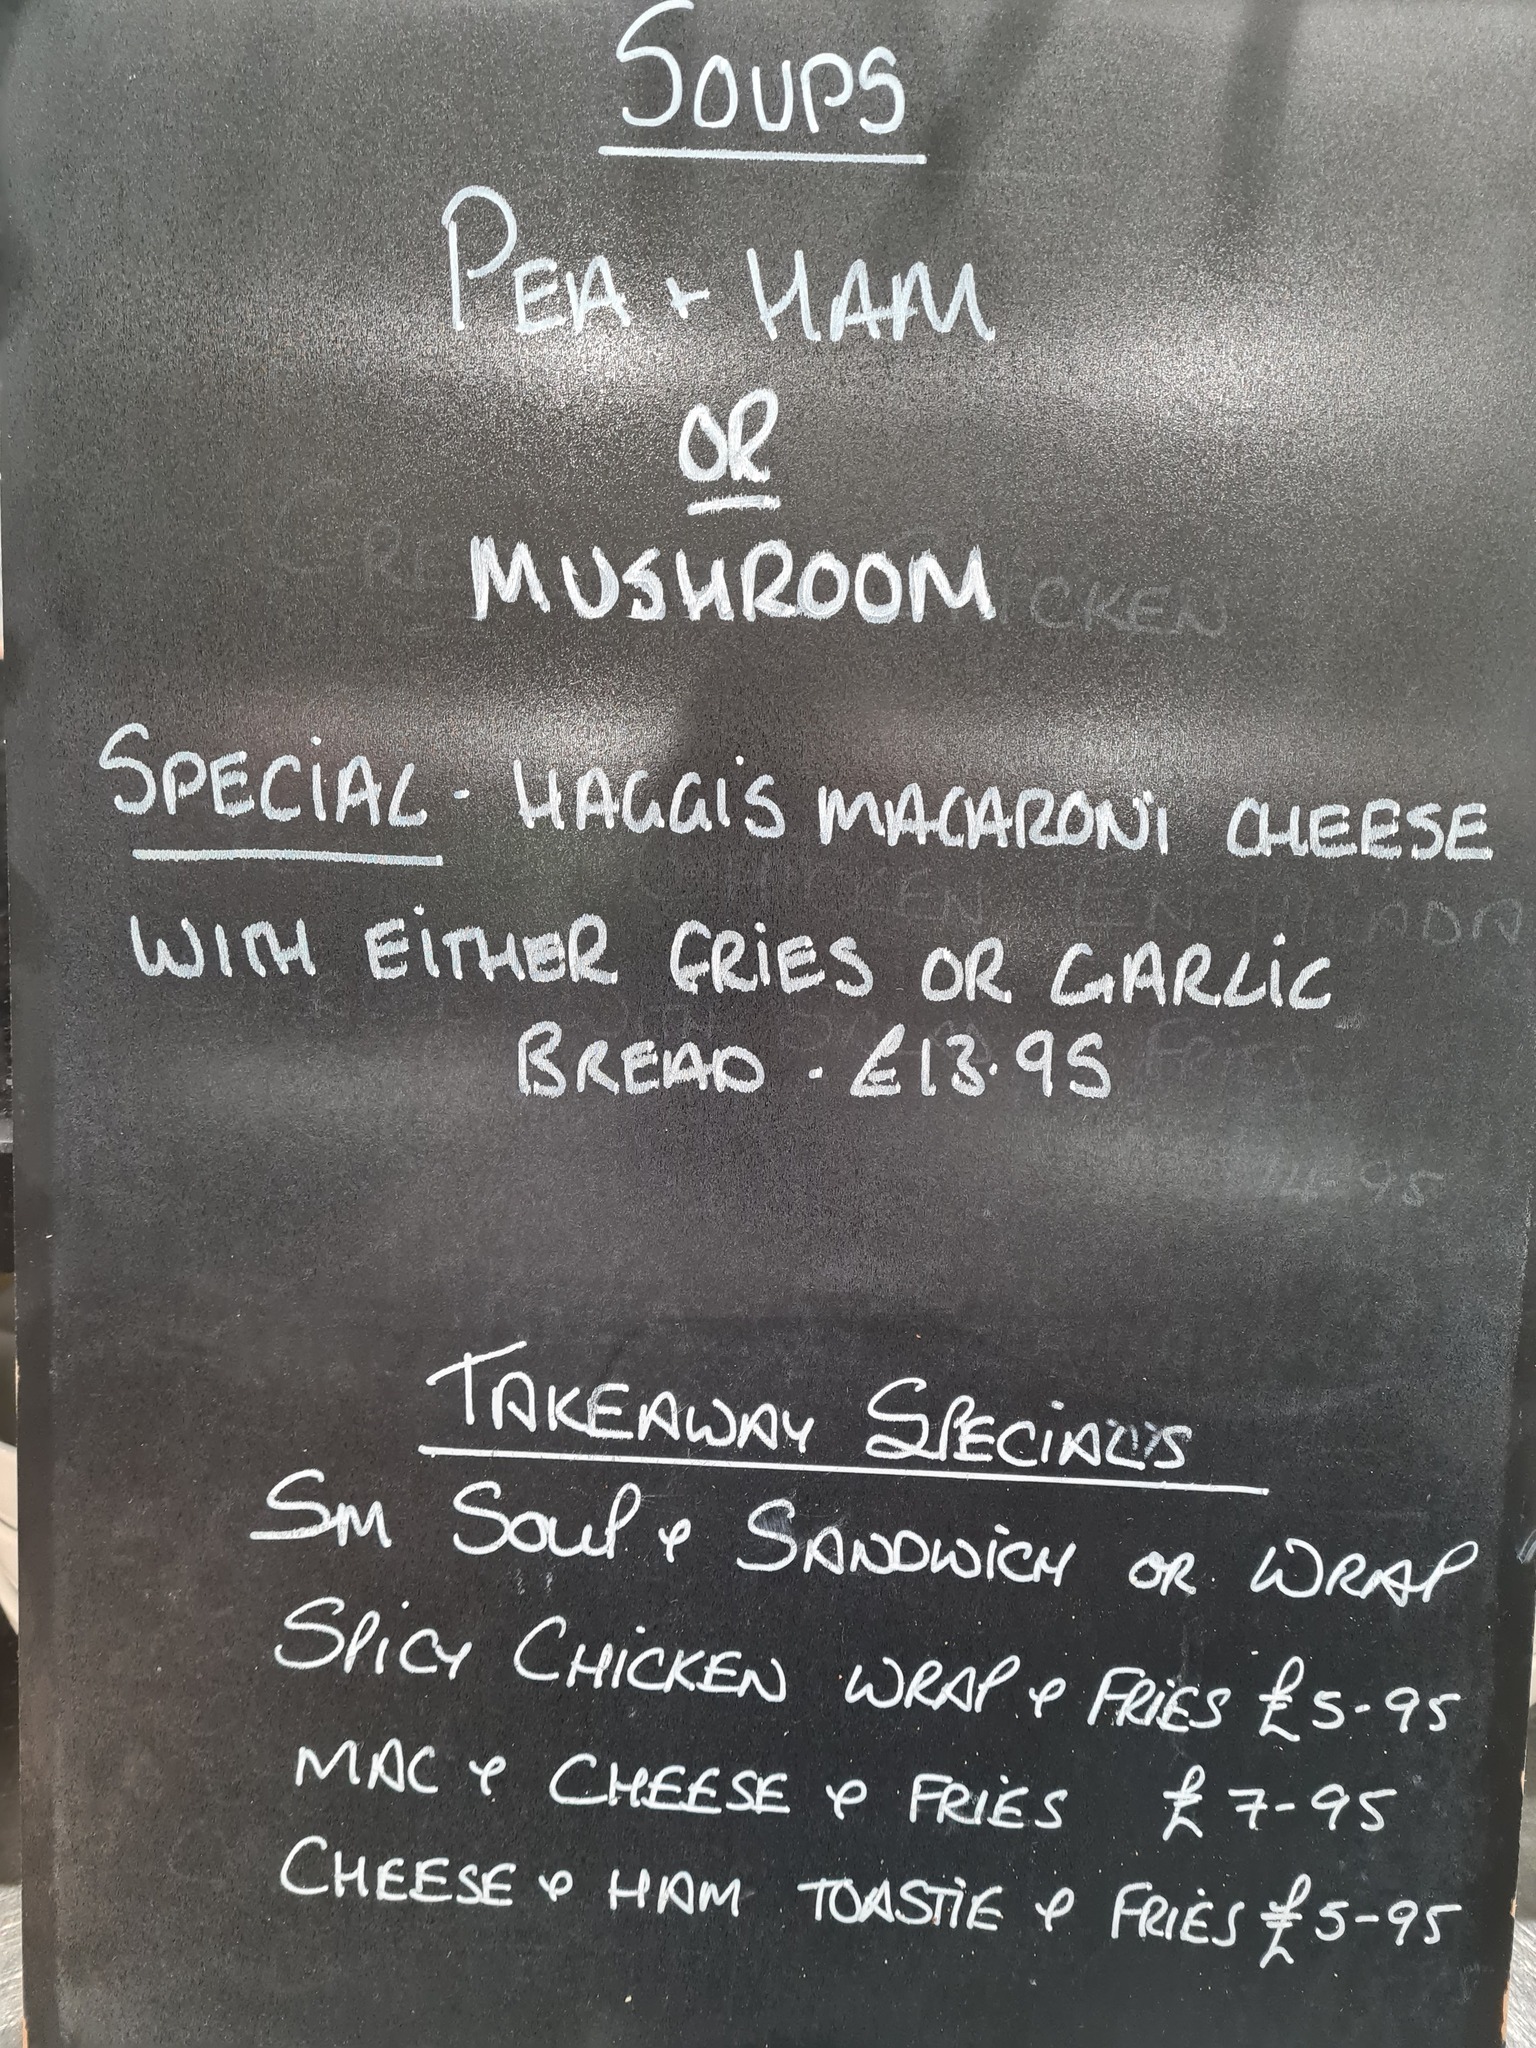 SOUPS
PEA + HAM
OR
MUSHROOM
SPECIAL - HAGGIS MACARONI CHEESE
WITH EITHER FRIES OR GARLIC
BREAD . £13.95
TAKEAWAY SPECIALS
SM SOUP & SANDWICH OR WRAP
SPICY CHICKEN WRAP & FRIES £5-95
MAC & CHEESE & FRIES £7-95
CHEESE & HAM TOASTIE & FRIES £5-95